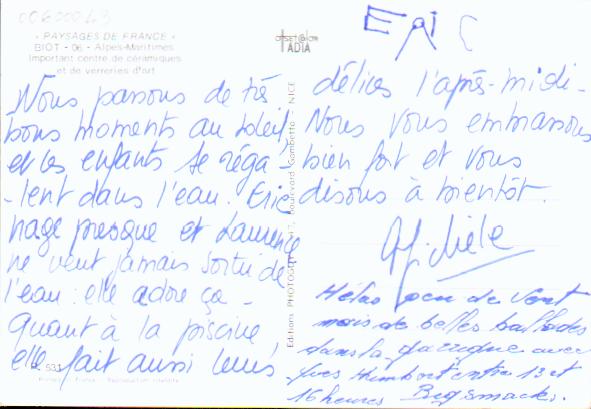 00620043
« PAYSAGES DE FRANCE »
BIOT - 06 - Alpes-Maritimes
Important centre de céramiques
et de verreries d'art
Nous passons de très
bons moments au soleil
et les enfants se réga
-lent dans l'eau. Eric
nage presque et Laurence
ne veut jamais sortir de
l'eau : elle adore ça -
Quant à la piscine,
elle fait aussi leurs
531
Offset Color
ADIA
Editions PHOTOGUY - 17, Boulevard Gambetta - NICE
ERIC
délices l'après-midi -
Nous vous embrassons
bien fort et vous
disons à bientôt.
Hélas peu de vent
mais de belles ballades
dans la garrigue avec
Yves Humbert entre 12 et
16 heures